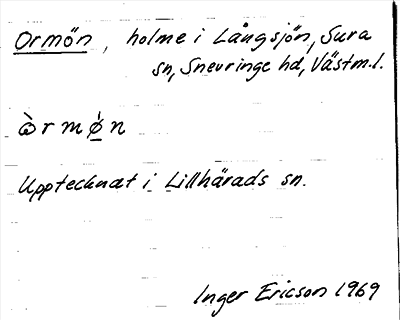 Ormön, holme i Långsjön, Sura
sn, Snevringe hd, Västm.l.
òrmø̀n
Upptecknat i Lillhärads sn.
Inger Ericson 1969